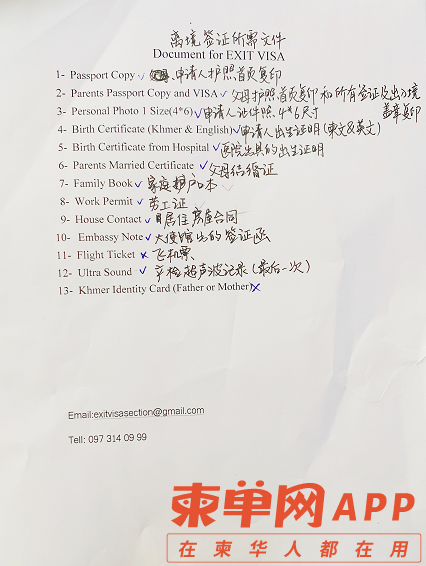 离境签证所需文件
Document for EXIT VISA
1- Passport Copy ✓ 申请人护照首页复印
2- Parents Passport Copy and VISA ✓ 父母护照首页复印和所有签证及出入境盖章复印
3- Personal Photo 1 Size(4*6) ✓ 申请人证件照 4*6尺寸
4- Birth Certificate (Khmer & English) ✓ 申请人出生证明(柬文&英文)
5- Birth Certificate from Hospital ✓ 医院出具的出生证明
6- Parents Married Certificate ✓ 父母结婚证
7- Family Book ✓ 家庭户口本
8- Work Permit ✓ 劳工证
9- House Contact ✓ 居住房屋合同
10- Embassy Note ✓ 大使馆出的签证函
11- Flight Ticket ✗ 飞机票
12- Ultra Sound ✓ 孕检超声波记录(最后一次)
13- Khmer Identity Card (Father or Mother) ✗
Email:exitvisasection@gmail.com
Tell: 097 314 09 99
柬单网APP
在柬华人都在用